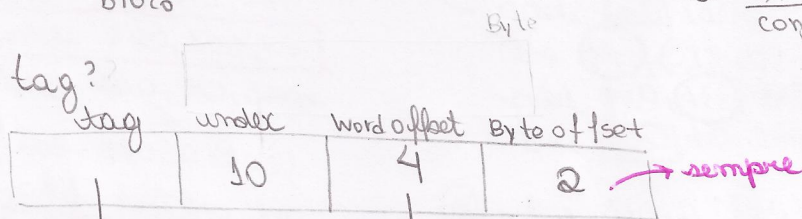 Bloco
Byte
con
tag?
tag index Word offset Byte offset
10 4 2 → sempre